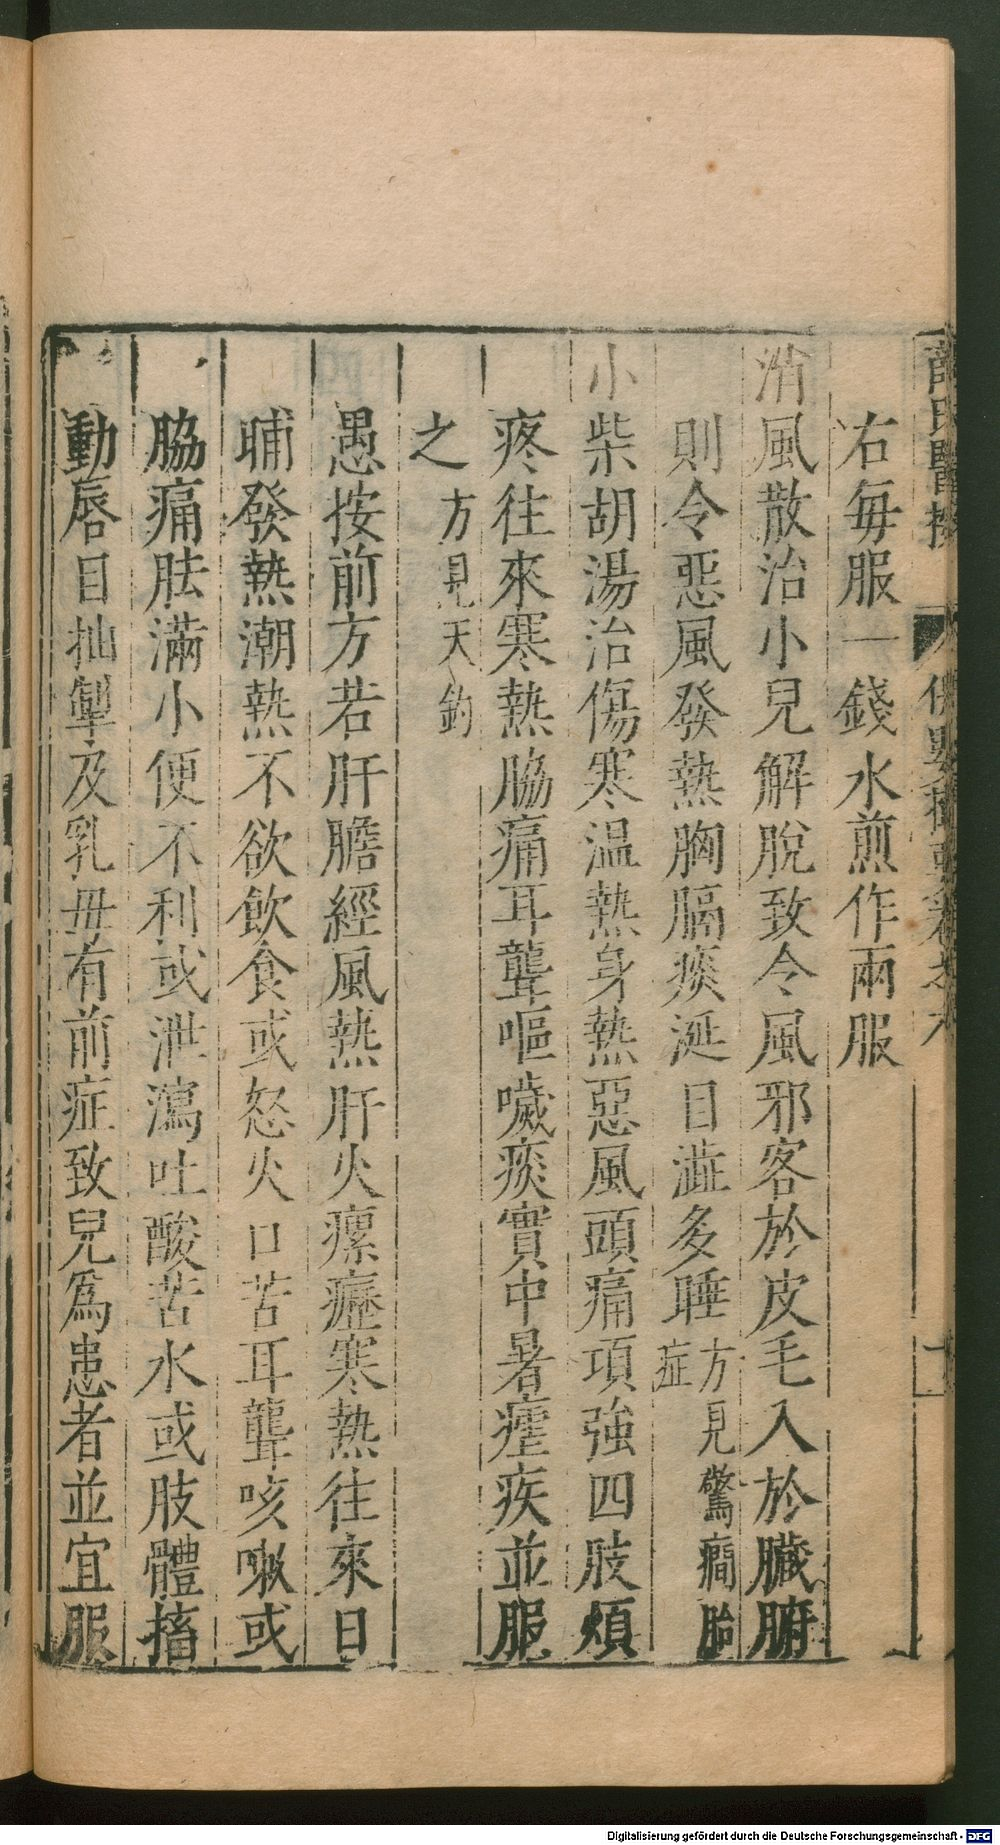 薛氏醫按
右毎服一錢水煎作兩服
消風散治小兒解脫致令風邪客於皮毛入於臟腑
則令惡風發熱胸膈痰涎目澁多睡方見驚癇胎症
小柴胡湯治傷寒温熱身熱惡風頭痛項強四肢煩
疼往來寒熱脇痛耳聾嘔噦痰實中暑瘧疾並服
之方見天釣
愚按前方若肝膽經風熱肝火瘰癧寒熱往來日
晡發熱潮熱不欲飲食或怒火口苦耳聾咳嗽或
脇痛胠滿小便不利或泄瀉吐酸苦水或肢體搐
動唇目抽掣及乳母有前症致兒爲患者並宜服
Digitalisierung gefördert durch die Deutsche Forschungsgemeinschaft - DFG